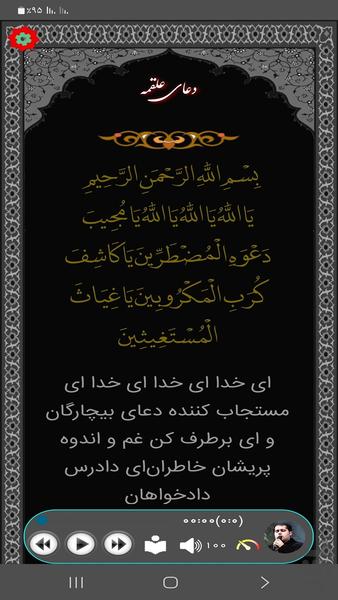 ٪۹۵
دعای علقمه
بِسْمِ اللَّهِ الرَّحْمَنِ الرَّحِيمِ
يَا اللَّهُ يَا اللَّهُ يَا اللَّهُ يَا مُجِيبَ
دَعْوَةِ الْمُضْطَرِّينَ يَا كَاشِفَ
كُرَبِ الْمَكْرُوبِينَ يَا غِيَاثَ
الْمُسْتَغِيثِينَ
ای خدا ای خدا ای خدا ای
مستجاب کننده دعای بیچارگان
و ای برطرف کن غم و اندوه
پریشان خاطران‌ای دادرس
دادخواهان
۰۰:۰۰(۰:۰)
۱۰۰